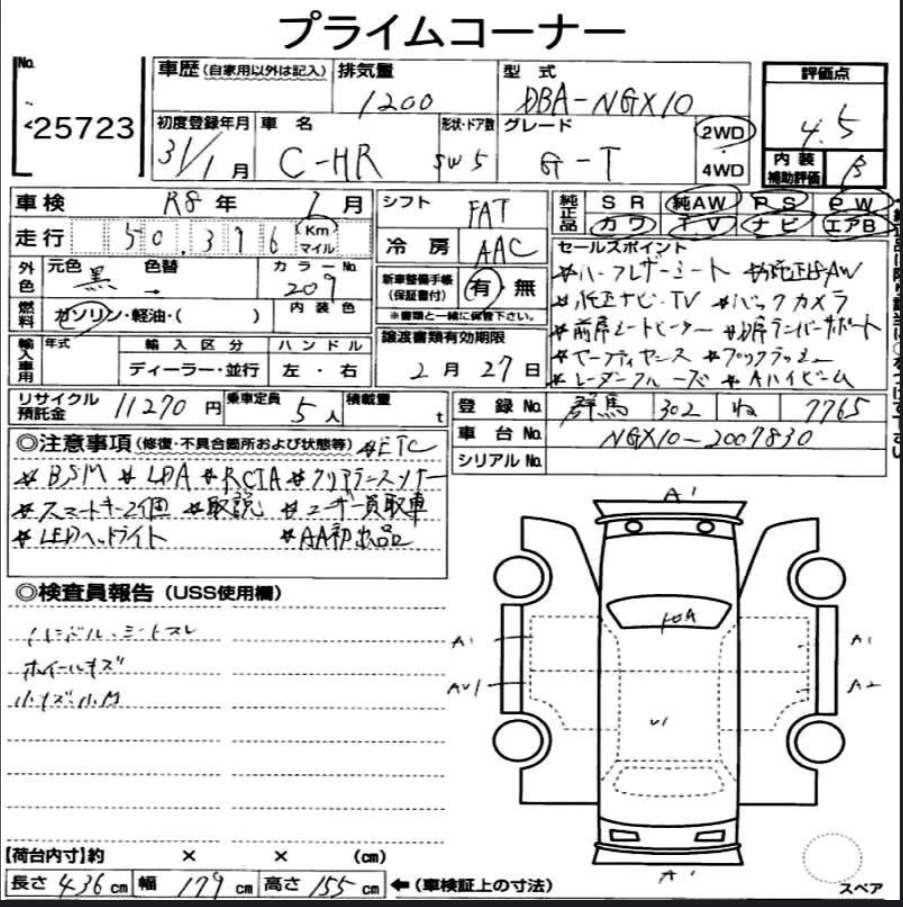 プライムコーナー
No. 25723
車歴 (自家用以外は記入) 排気量 1200 型式 DBA-NGX10 評価点 4.5
初度登録年月 31/1月 車名 C-HR 形状・ドア数 SW 5 グレード G-T 2WD 4WD 内装補助評価 B
車検 R8年 1月 シフト FAT 純正品 SR 純AW PS PW
走行 50,376 Km マイル 冷房 AAC カワ TV ナビ エアB
外色 元色 黒 色替 → カラーNo. 209 新車整備手帳(保証書付) 有・無 セールスポイント
※書類と一緒に保管下さい。
*ハーフレザーシート *純正18AW
燃料 ガソリン・軽油・( ) 内装色 *純正ナビ・TV *バックカメラ
譲渡書類有効期限 2月27日 *前席シートヒーター
輸入車用 年式 輸入区分 ハンドル
ディーラー・並行 左・右 *セーフティセンス
*レーダークルーズ *Aハイビーム
リサイクル預託金 11270円 乗車定員 5人 積載量 t 登録No. 群馬 302 ね 7765
車台No. NGX10-2007830
シリアルNo.
◎注意事項 (修復・不具合箇所および状態等) *ETC
*BSM *LDA *RCTA *クリアランスソナー
*スマートキー2個 *取説 *ユーザー買取車
*LEDヘッドライト *AA初出品
◎検査員報告 (USS使用欄)
ハンドル・シートスレ
ホイールキズ
小キズ・小凹
A1
A1 A1
AU1 A2
U1
A1
【荷台内寸】約 × × (cm)
長さ 436 cm 幅 179 cm 高さ 155 cm ←(車検証上の寸法) スペア